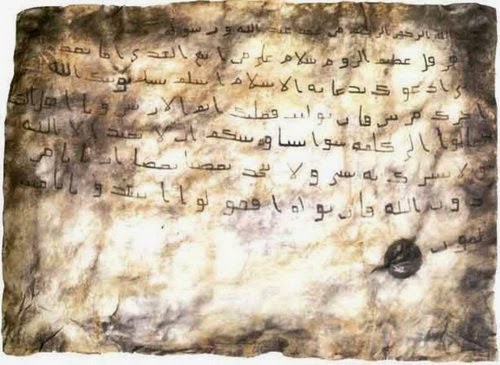 الله الرحمن الرحيم من محمد عبد الله و رسوله
هرقل عظيم الروم سلام على من اتبع الهدى اما بعد
ادعوك بدعاية الاسلام اسلم تسلم يوتك الله
اجرك مرتين فان توليت فعليك اثم الاريسين و يا اهل الك
تعالوا الى كلمة سوا بيننا و بينكم ان لا نعبد الا الله
و لا نشرك به شيا و لا يتخذ بعضنا بعضا اربابا من
دون الله فان تولوا فقولوا اشهدوا بانا مس
لمون